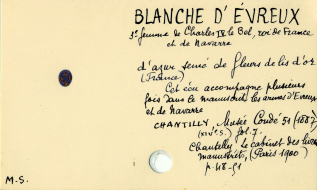 BLANCHE D'ÉVREUX
3e femme de Charles IV le Bel, roi de France
et de Navarre
d'azur semé de fleurs de lis d'or
(France)
Cet écu accompagne plusieurs
fois dans le manuscrit les armes d'Evreux
et de Navarre
CHANTILLY, Musée Condé 51 (1887)
(XIVe S.) fol. 7.
Chantilly, le cabinet des livres
manuscrits, (Paris 1900)
p. 48-51
M-S.